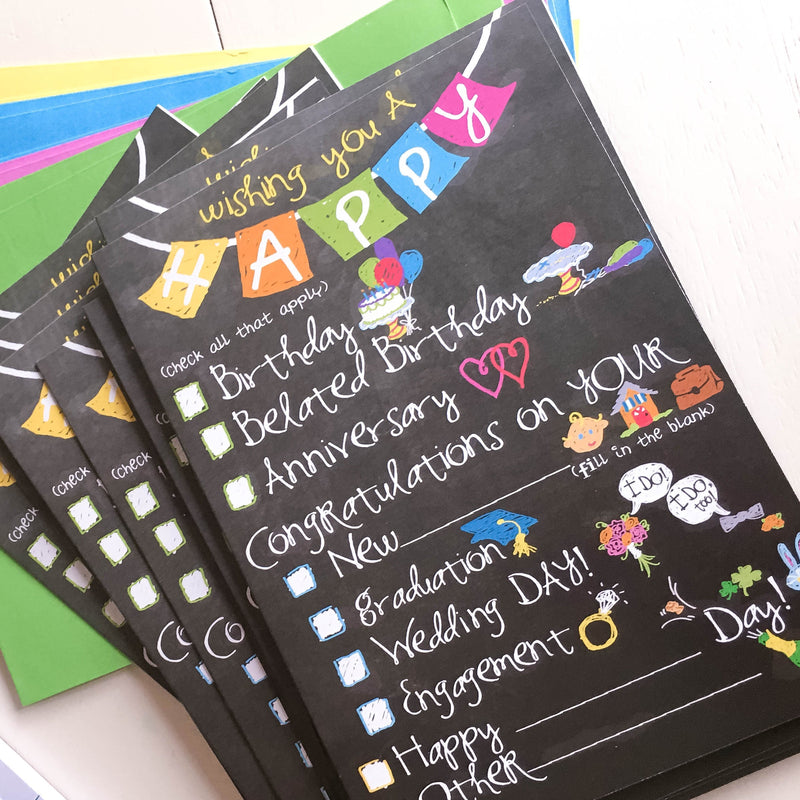 wishing you A
HAPPY
(check all that apply)
Birthday
Belated Birthday
Anniversary
Congratulations on YOUR
New (fill in the blank)
graduation
Wedding DAY!
I DO!
I DO too!
Engagement
Happy Day!
Other
wish
wish
(check
(check
(check
(check
Co
Co